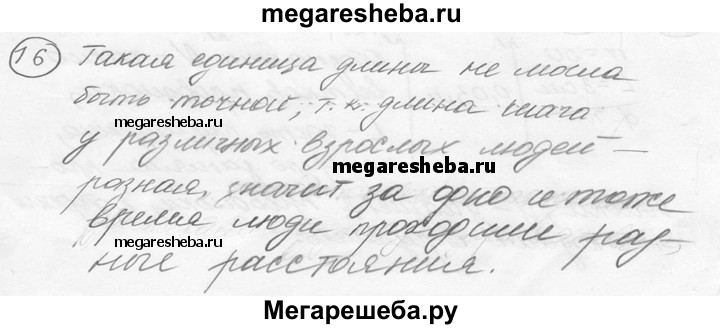 megaresheba.ru
16 Такая единица длины не могла
быть точной, т. к. длина шага
megaresheba.ru
у различных взрослых людей –
megaresheba.ru
разная, значит за одно и тоже
время люди проходили раз-
megaresheba.ru
ные расстояния.
Мегарешеба.ру